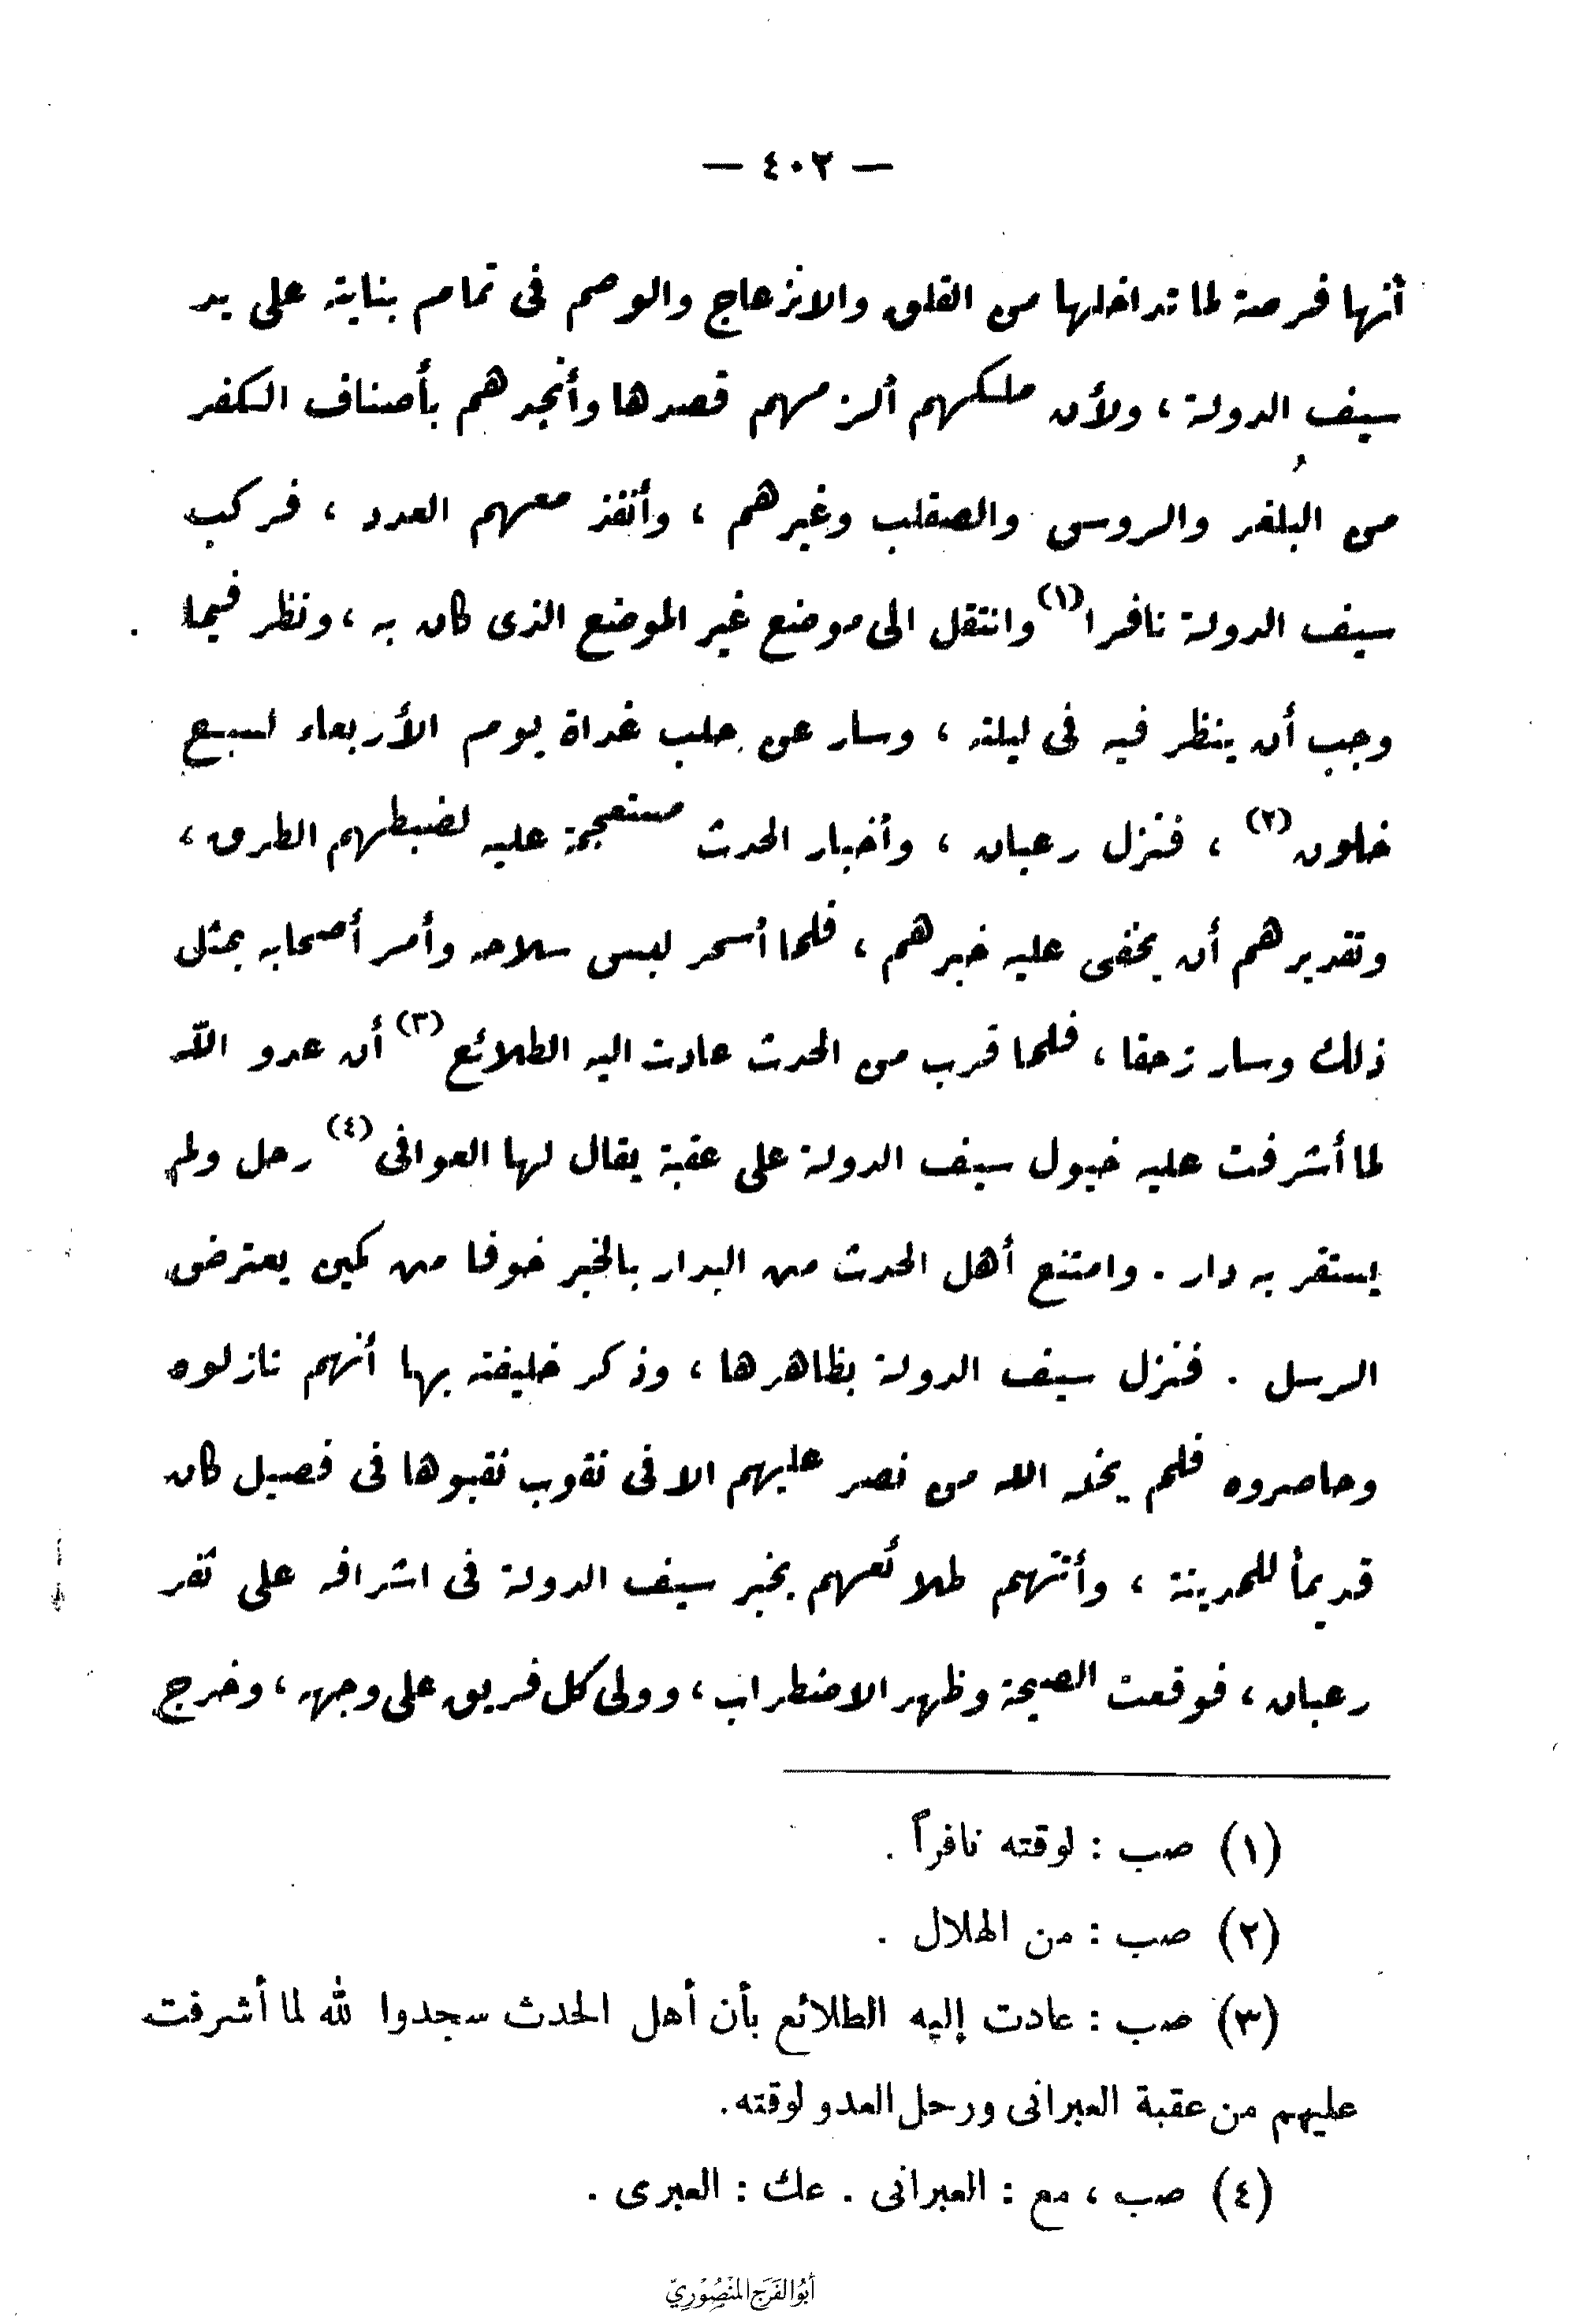 — ٤٠٢ —
أنها فرصة لما تداخلها من القلق والانزعاج والوصم فى تمام بنايته على يد
سيف الدولة ، ولأن ملكهم ألزمهم قصدها وأنجدهم بأصناف الكفر
من البُلغر والروس والصقلب وغيرهم ، وأنفذ معهم العدد ، فركب
سيف الدولة نافرا (١) وانتقل الى موضع غير الموضع الذى كان به ، ونظر فيما
وجب أن ينظر فيه فى ليلته ، وسار عن حلب غداة يوم الأربعاء لسبع
خلون (٢) ، فنزل رعبان ، وأخبار الحدث مستعجمة عليه لضبطهم الطرق ،
وتقديرهم أن يخفى عليه خبرهم ، فلما أسحر لبس سلاحه وأمر أصحابه بمثل
ذلك وسار زحفا ، فلما قرب من الحدث عادت اليه الطلائع (٣) أن عدو الله
لما أشرفت عليه خيول سيف الدولة على عقبة يقال لها العوافى (٤) رحل ولم
يستقر به دار . وامتنع أهل الحدث من البدار بالخبر خوفا من كمين يعترض
الرسل . فنزل سيف الدولة بظاهرها ، وذكر خليفته بها أنهم نازلوه
وحاصروه فلم يخله الله من نصر عليهم الا فى نقوب نقبوها فى فصيل كان
قديماً للمدينة ، وأتتهم طلائعهم بخبر سيف الدولة فى اشرافه على ثغر
رعبان ، فوقعت الصيحة وظهر الاضطراب ، وولى كل فريق على وجهه ، وخرج
(١) صب : لوقته نافراً .
(٢) صب : من الهلال .
(٣) صب : عادت إليه الطلائع بأن أهل الحدث سجدوا لله لما أشرفت
عليهم من عقبة العبرانى ورحل العدو لوقته.
(٤) صب ، مع : العبرانى . عك : العبرى .
أبُوالفَرَج المنْصُوْريّ